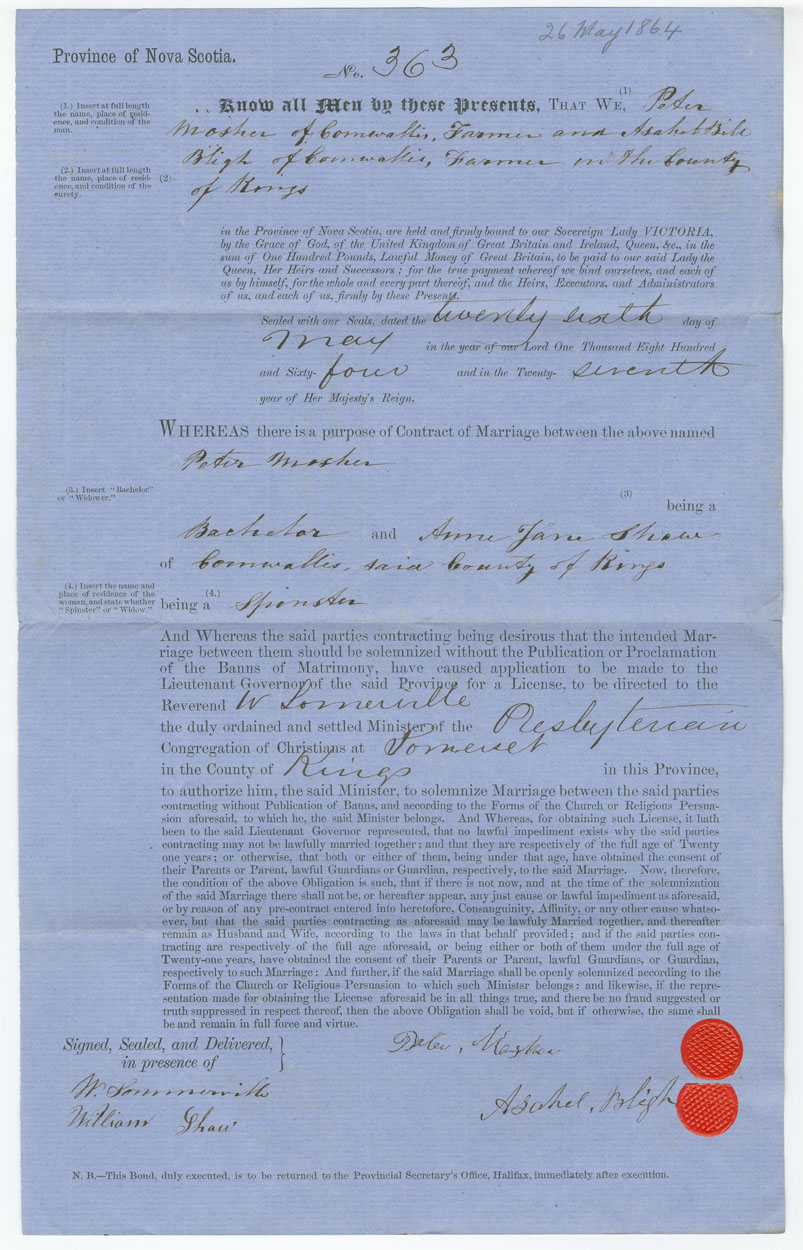 26 May 1864
Province of Nova Scotia.
No. 363
(1.) Insert at full length
the name, place of resid-
ence, and condition of the
man.
(1)
.. Know all Men by these Presents, THAT WE, Peter
Mosher of Cornwallis, Farmer and Asahel Bill
(2.) Insert at full length
the name, place of resid-
ence, and condition of the
surety.
(2)
Bligh of Cornwallis, Farmer in the County
of Kings
in the Province of Nova Scotia, are held and firmly bound to our Sovereign Lady VICTORIA,
by the Grace of God, of the United Kingdom of Great Britain and Ireland, Queen, &c., in the
sum of One Hundred Pounds, Lawful Money of Great Britain, to be paid to our said Lady the
Queen, Her Heirs and Successors; for the true payment whereof we bind ourselves, and each of
us by himself, for the whole and every part thereof, and the Heirs, Executors, and Administrators
of us, and each of us, firmly by these Presents.
Sealed with our Seals, dated the twenty sixth day of
May in the year of our Lord One Thousand Eight Hundred
and Sixty- four and in the Twenty- seventh
year of Her Majesty's Reign.
WHEREAS there is a purpose of Contract of Marriage between the above named
Peter Mosher
(3.) Insert "Bachelor"
or "Widower."
(3)
being a
Bachelor and Anne Jane Shaw
of Cornwallis, said County of Kings
(4.) Insert the name and
place of residence of the
woman, and state whether
"Spinster" or "Widow."
(4.)
being a Spinster
And Whereas the said parties contracting being desirous that the intended Mar-
riage between them should be solemnized without the Publication or Proclamation
of the Banns of Matrimony, have caused application to be made to the
Lieutenant Governor of the said Province for a License, to be directed to the
Reverend W Somerville
the duly ordained and settled Minister of the Presbyterian
Congregation of Christians at Somerset
in the County of Kings in this Province,
to authorize him, the said Minister, to solemnize Marriage between the said parties
contracting without Publication of Banns, and according to the Forms of the Church or Religious Persua-
sion aforesaid, to which he, the said Minister belongs. And Whereas, for obtaining such License, it hath
been to the said Lieutenant Governor represented, that no lawful impediment exists why the said parties
contracting may not be lawfully married together; and that they are respectively of the full age of Twenty
one years; or otherwise, that both or either of them, being under that age, have obtained the consent of
their Parents or Parent, lawful Guardians or Guardian, respectively, to the said Marriage. Now, therefore,
the condition of the above Obligation is such, that if there is not now, and at the time of the solemnization
of the said Marriage there shall not be, or hereafter appear, any just cause or lawful impediment as aforesaid,
or by reason of any pre-contract entered into heretofore, Consanguinity, Affinity, or any other cause whatso-
ever, but that the said parties contracting as aforesaid may be lawfuly Married together, and thereafter
remain as Husband and Wife, according to the laws in that behalf provided; and if the said parties con-
tracting are respectively of the full age aforesaid, or being either or both of them under the full age of
Twenty-one years, have obtained the consent of their Parents or Parent, lawful Guardians, or Guardian,
respectively to such Marriage: And further, if the said Marriage shall be openly solemnized according to the
Forms of the Church or Religious Persuasion to which such Minister belongs: and likewise, if the repre-
sentation made for obtaining the License aforesaid be in all things true, and there be no fraud suggested or
truth suppressed in respect thereof, then the above Obligation shall be void, but if otherwise, the same shall
be and remain in full force and virtue.
Signed, Sealed, and Delivered,
in presence of
Peter, Mosher
W. Sommerville
William Shaw
Asahel, Bligh
N. B.—This Bond, duly executed, is to be returned to the Provincial Secretary's Office, Halifax, immediately after execution.